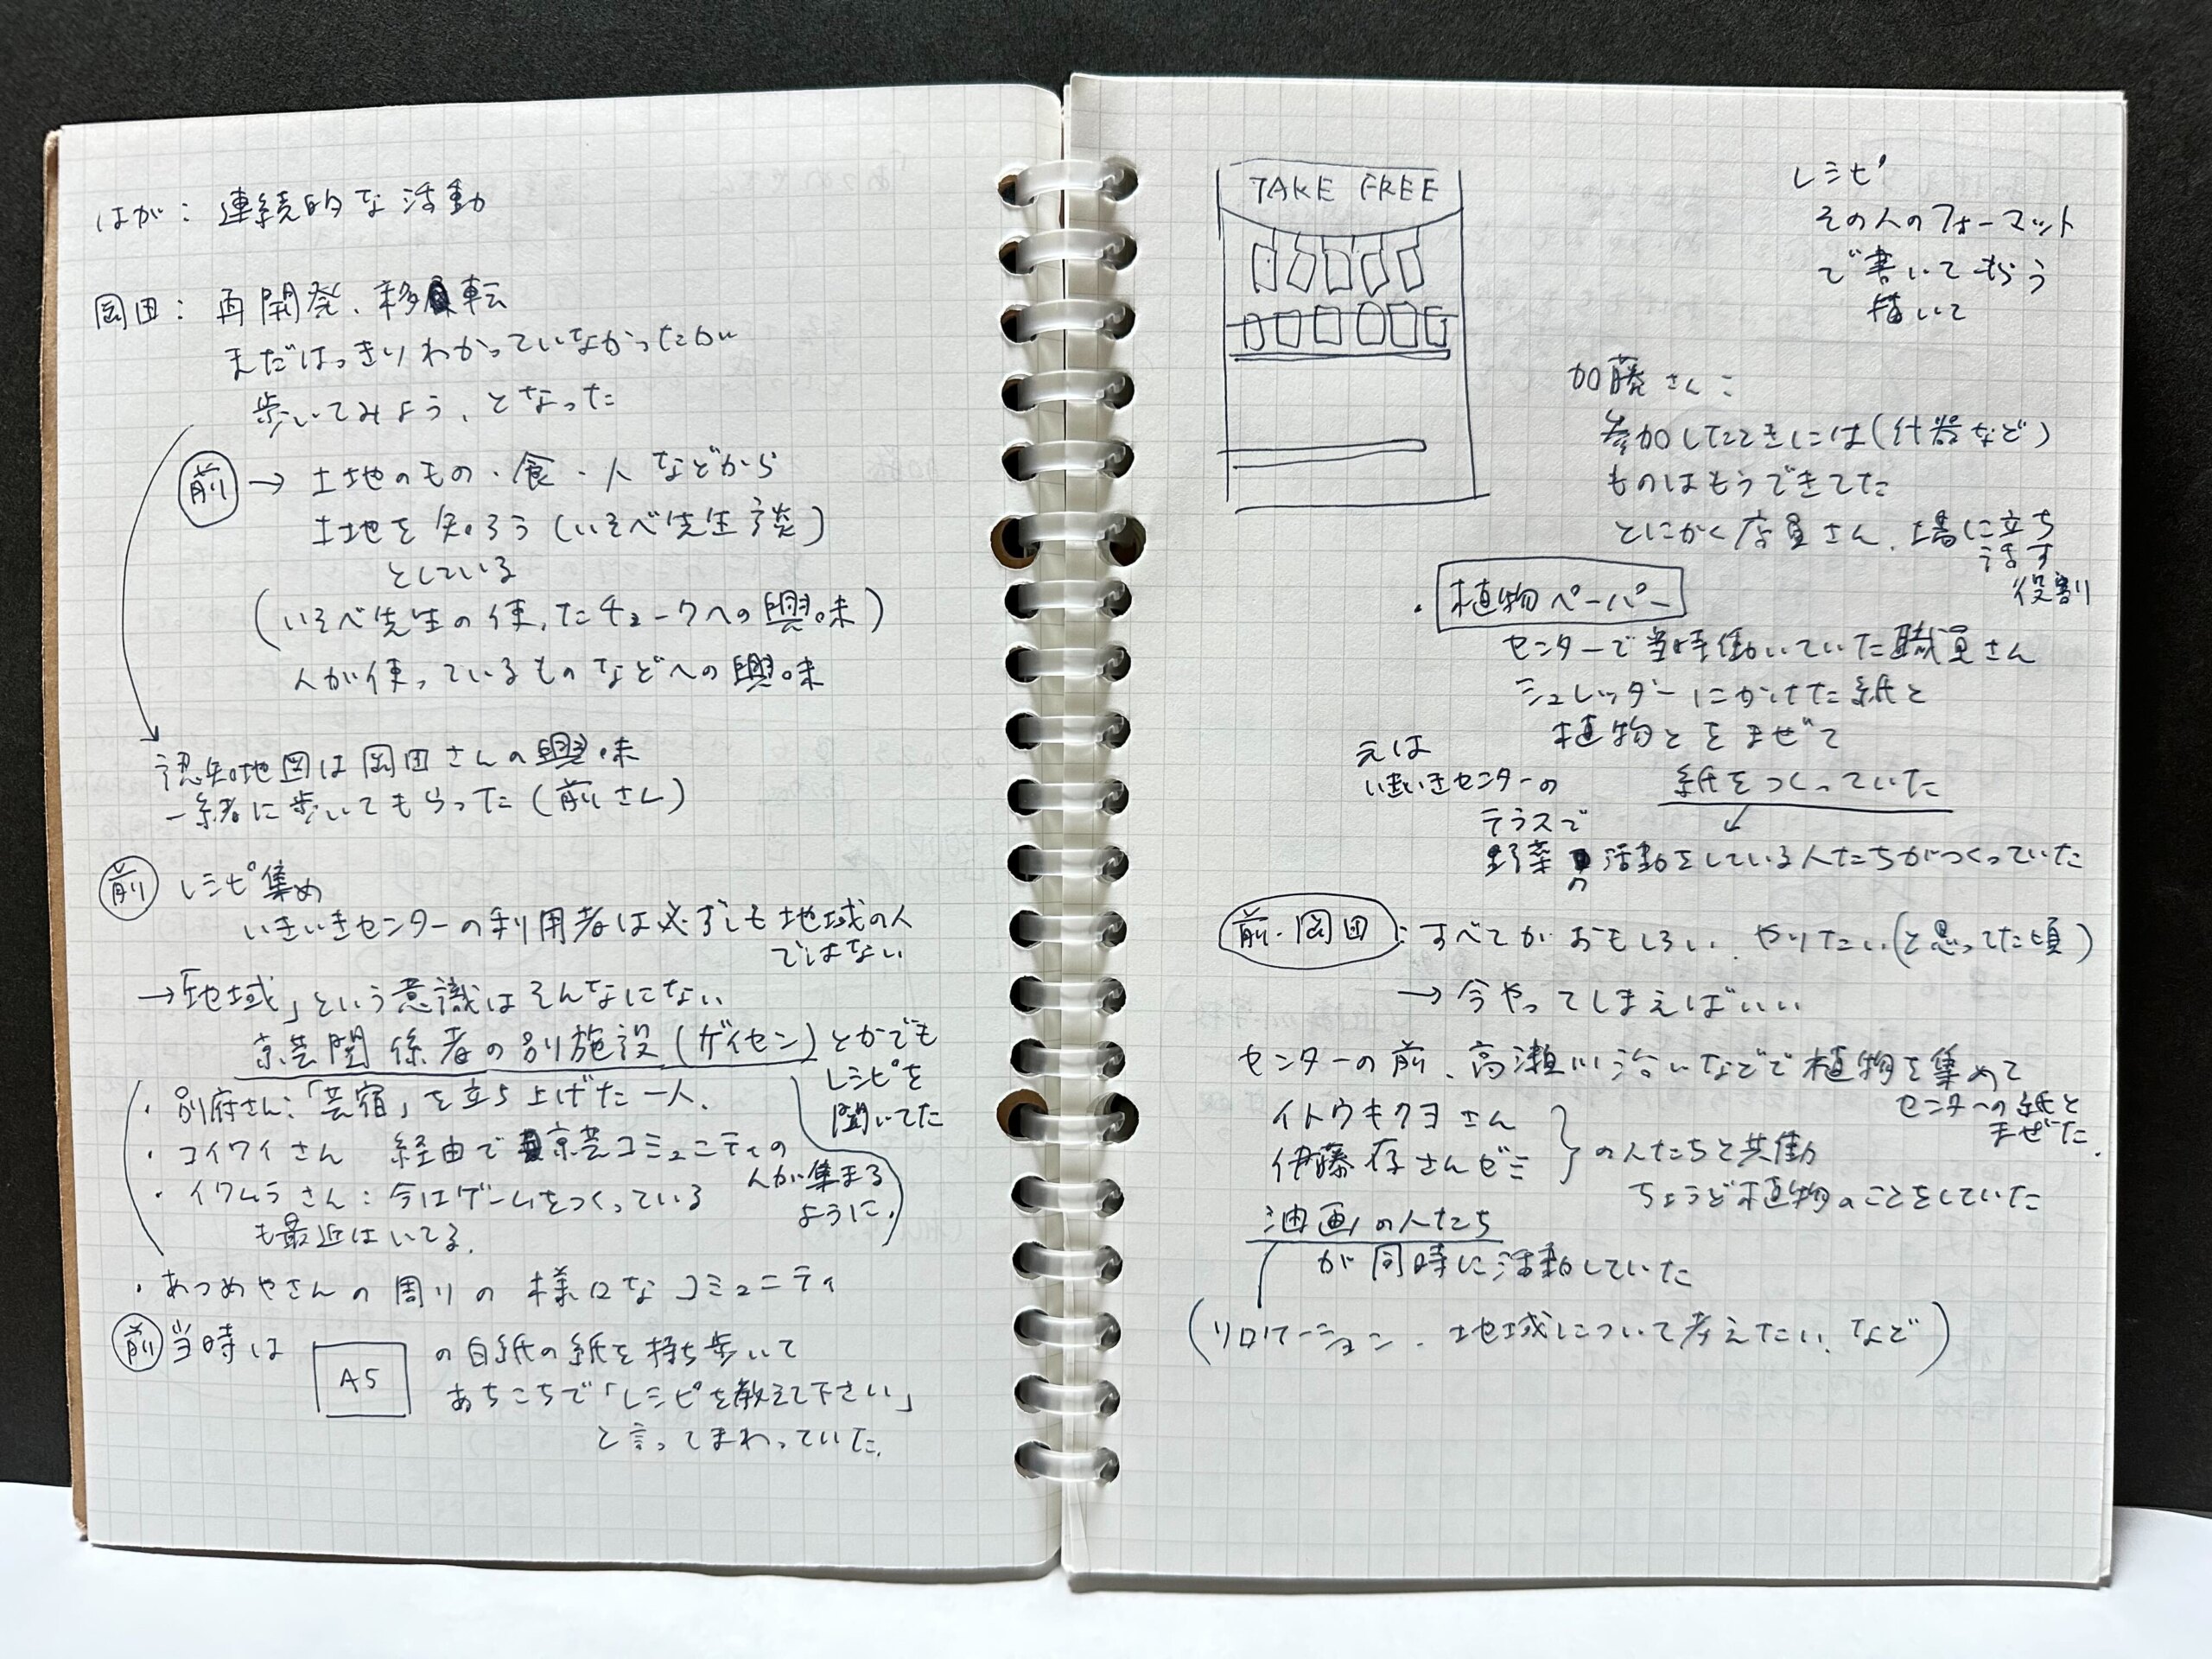 はが：連続的な活動
岡田：再開発、移転
まだはっきりわかっていなかったが
歩いてみよう、となった
前→土地のもの・食・人などから
土地を知ろう（いそべ先生談）
としている
（いそべ先生の使ったチョークへの興味）
人が使っているものなどへの興味
認知地図は岡田さんの興味
一緒に歩いてもらった（前さん）
前 レシピ集め
いきいきセンターの利用者は必ずしも地域の人
ではない
→「地域」という意識はそんなにない
京芸関係者の別施設（ゲイセン）とかでも
レシピを
聞いてた
・別府さん：「芸宿」を立ち上げた一人、
・コイワイさん 経由で京芸コミュニティの
人が集まる
ように、
・イワムラさん：今はゲームをつくっている
も最近はいてる、
・あつめやさんの周りの様々なコミュニティ
前 当時は A5 の白紙の紙を持ち歩いて
あちこちで「レシピを教えて下さい」
と言ってまわっていた、
TAKE FREE
レシピ
その人のフォーマット
で書いてもらう
描いて
加藤さん：
参加したときには（什器など）
ものはもうできてた
とにかく店員さん、場に立ち
話す
役割
・植物ペーパー
センターで当時働いていた職員さん
シュレッダーにかけた紙と
植物とをまぜて
紙をつくっていた
元は
いきいきセンターの
テラスで
野菜の活動をしている人たちがつくっていた
前・岡田：すべてがおもしろい、やりたい（と思ってた頃）
→今やってしまえばいい
センターの前、高瀬川沿いなどで植物を集めて
センターの紙と
まぜた、
イトウキクヨさん
伊藤存さんゼミ
の人たちと共働
ちょうど植物のことをしていた
油画の人たち
が同時に活動していた
（リロケーション、地域について考えたい、など）